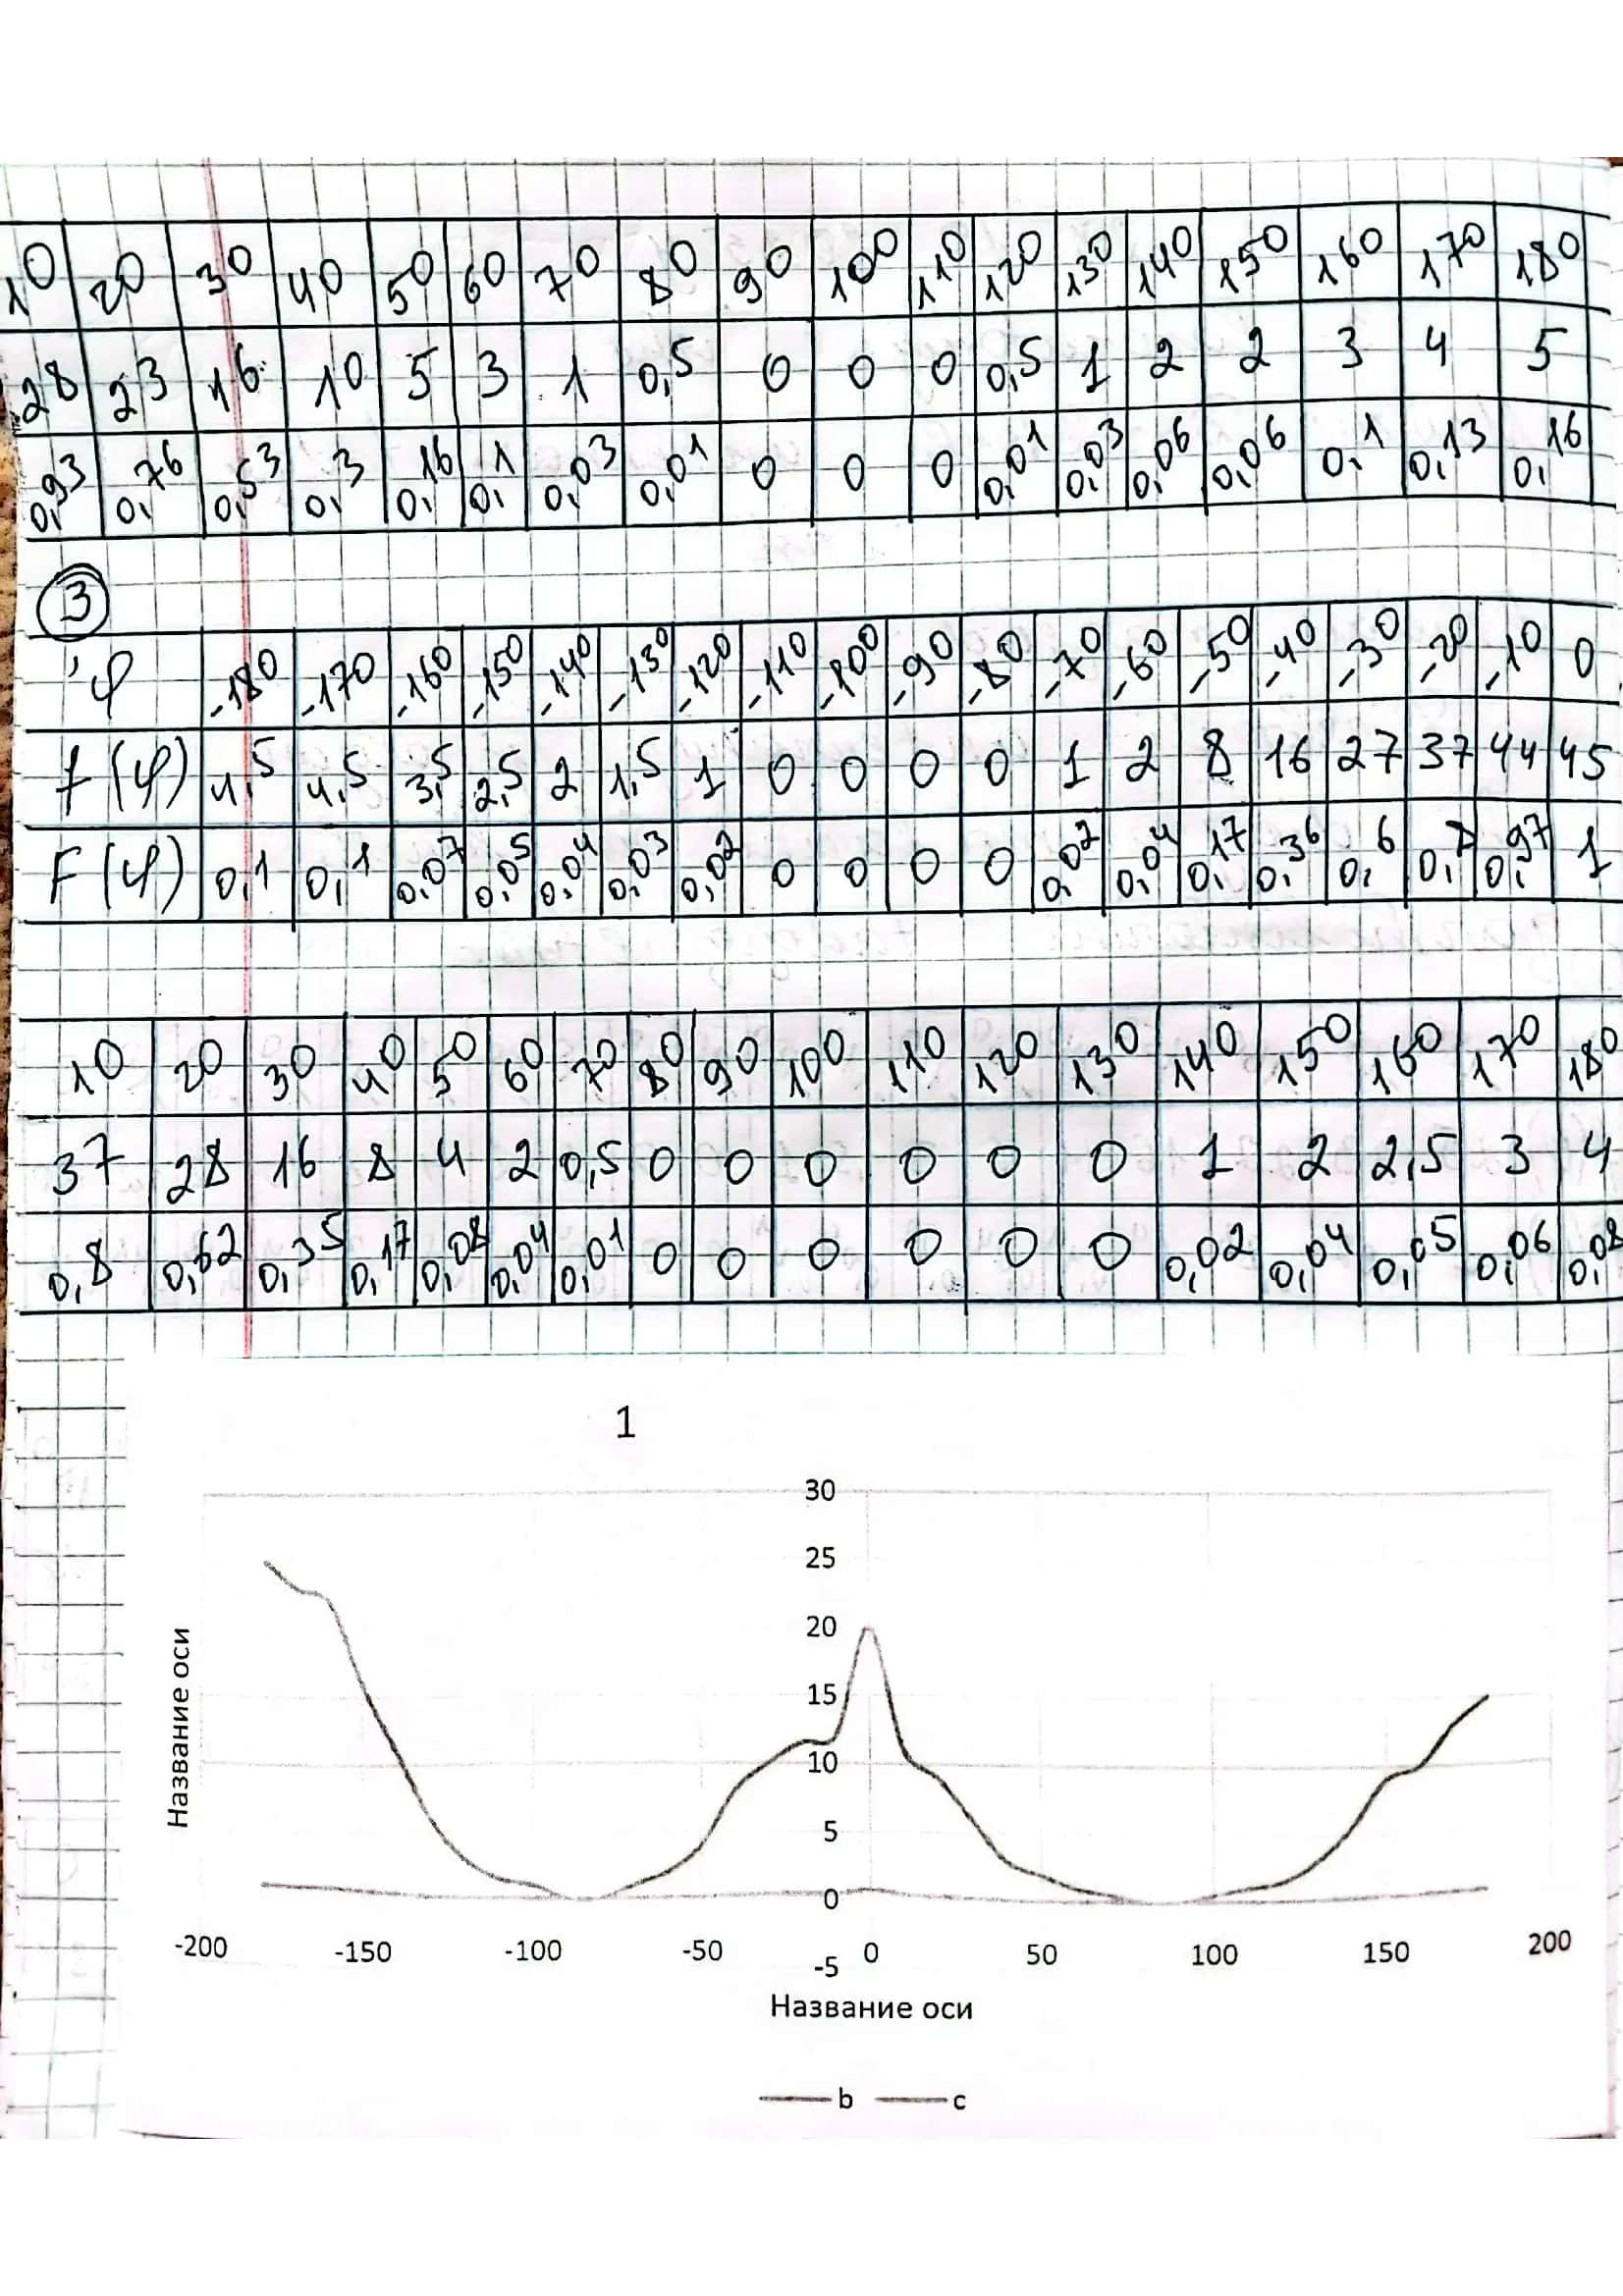 10 20 30 40 50 60 70 80 90 100 110 120 130 140 150 160 170 180
28 23 16 10 5 3 1 0,5 0 0 0 0,5 1 2 2 3 4 5
0,93 0,76 0,53 0,3 0,16 0,1 0,03 0,01 0 0 0 0,01 0,03 0,06 0,06 0,1 0,13 0,16
3
φ -180 -170 -160 -150 -140 -130 -120 -110 -100 -90 -80 -70 -60 -50 -40 -30 -20 -10 0
f(φ) 4,5 4,5 3,5 2,5 2 1,5 1 0 0 0 0 1 2 8 16 27 37 44 45
F(φ) 0,1 0,1 0,07 0,05 0,04 0,03 0,02 0 0 0 0 0,02 0,04 0,17 0,36 0,6 0,97 1
10 20 30 40 50 60 70 80 90 100 110 120 130 140 150 160 170 180
37 28 16 8 4 2 0,5 0 0 0 0 0 0 1 2 2,5 3 4
0,8 0,62 0,35 0,17 0,08 0,04 0,01 0 0 0 0 0 0 0,02 0,04 0,05 0,06 0,08
1
30
25
20
15
10
5
0
-5
Название оси
-200 -150 -100 -50 0 50 100 150 200
Название оси
b c